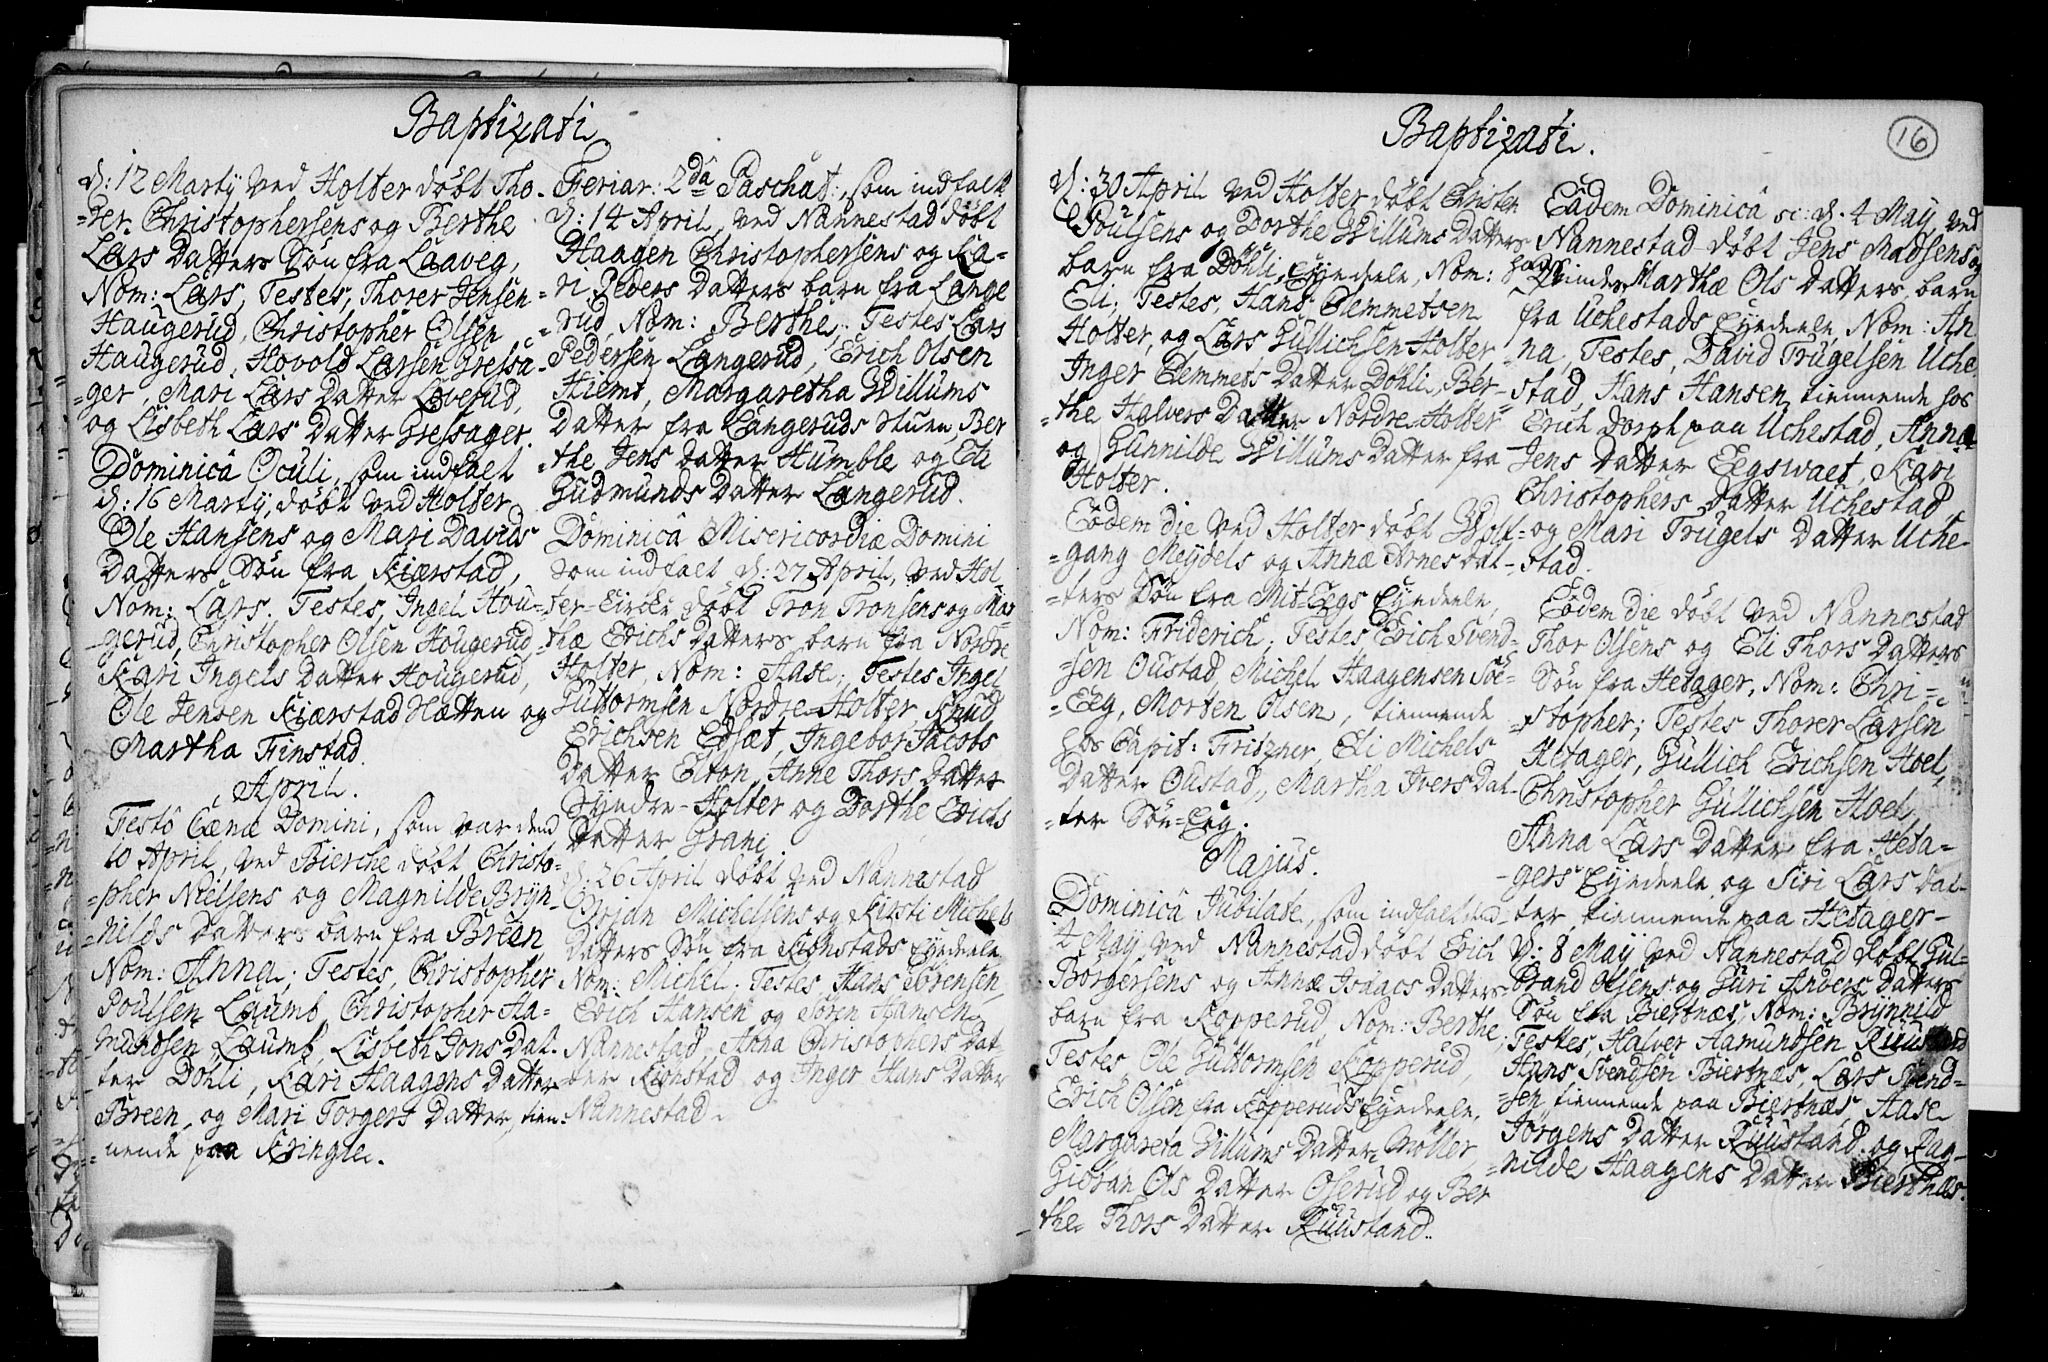 Baptizati
d: 12 Martij ved Holter døbt Tho-
=rer Christophersens og Berthe
Lars Datters Søn fra Laaveg,
Nom: Lars, Testes, Thorer Jensen
Haugerud, Christopher Olsen
Haugerud, Hovold Larsen Gressa-
=ger, Mari Lars Datter Løverud,
og Lisbeth Lars Datter Gressager.
Dominica Oculi, som indfalt
d: 16 Martij, døbt ved Holter
Ole Hansens og Mari Davids
Datters Søn fra Kiærstad,
Nom: Lars. Testes, Ingel Hou-
gerud, Christopher Olsen Hougerud,
Kari Ingels Datter Hougerud,
Ole Jensen Kiærstad Hatten og
Martha Finstad.
April.
Festo Cænæ Domini, som var dend
10 April, ved Bierche døbt Christo-
=pher Nielsens og Magnilde Bryn-
=nilds Datters barn fra Breen
Nom: Anna; Testes, Christopher
Poulsen Laumb, Christopher Ha-
mundsen Laumb, Lisbeth Jons Dat-
ter Døhli, Kari Haagens Datter
Breen, og Mari Torgers Datter, tien-
nende paa Kringle.
Feriar: 2da Paschat:, som indfalt
d: 14 April, ved Nannestad døbt
Haagen Christophersens og Ka-
=ri Peders Datters barn fra Lange
=rud, Nom: Berthe; Testes Lars
Pedersen Langerud, Erich Olsen
Hiemt, Margaretha Willums
Datter fra Langeruds stuen, Ber
=the Jens Datter Humble og Eli
Gudmunds Datter Langerud.
Dominica Misericordiæ Domini
som indfalt d: 27 April, ved Hol-
ter-Kirke døbt Tron Tronsens og Mar
=thæ Erichs Datters barn fra Nordre
Holter, Nom: Aase; Testes Ingel
Guttormsen Nordre-Holter, Knud
Erichsen Edsæt, Ingebor Jacobs
Datter Elton, Anne Thors Datter
Syndre-Holter og Dorthe Erichs
Datter Grani
d: 26 April døbt ved Nannestad
Michelsens og Kirsti Michels
Datters Søn fra Kionstads Eyndeele
Nom: Michel; Testes, Hans Sørensen,
Erich Hansen og Søren Hansen
Nannestad, Anna Christophers Dat-
ter Kionstad og Inger Hans Datter
Nannestad.
Baptizati.
16
d: 30 April ved Holter døbt Christen
Poulsens og Dorthe Willums Datters
barn fra Døhli Eyndeele, Nom:
Eli; Testes, Hans Clemmetsen
Holter, og Lars Gullichsen Holter
Inger Clemmets Datter Døhli, Ber-
=the Halvers Datter Nordre-Holter
og Gunnilde Willums Datter fra
Holter.
Eodem die ved Holter døbt Wolf-
=gang Meydels og Annæ Arnes Dat-
=ters Søn fra Mit-Eegs Eyndeele,
Nom: Friderich; Testes Erich Svend-
=sen Oustad, Michel Haagensen Søe-
=Eeg, Morten Olsen, tiennende
hos Capit: Fritzner, Eli Michels
Datter Oustad, Martha Ivers Dat-
=ter Søn-Eeg.
Majus.
Dominica Jubilate, som indfalt dend
4 Maij ved Nannestad døbt Erich
Borgersens og Annæ Isaacs Datters
barn fra Kopperud, Nom: Berthe;
Testes, Ole Guttormsen Kopperud,
Erich Olsen fra Kopperuds Eyndeele,
Margareta Willums Datter Møller
Giøran Ols Datter Oserud og Ber
the Thors Datter Ruustand.
Eadem Dominica sc: d. 4 Maij ved
Nannestad døbt Jens Madsens og
hans Qvindes Marthæ Ols Datters barn
fra Uchestads Eyndeele, Nom: An
=na, Testes, David Trugelsen Uche
stad, Hans Hansen tiennende hos
Erich Dorph paa Uchestad, Anna
Jens Datter Eegswaet, Kari
Christophers Datter Uchestad,
og Mari Trugels Datter Uche-
stad.
Eodem die døbt ved Nannestad
Thor Olsens og Eli Thors Datters
Søn fra Hetager, Nom: Chri-
=stopher; Testes Thorer Larsen
Hetager, Gullich Erichsen Hoel,
Christopher Gullichsen Hoel,
Anna Lars Datter fra Heta-
gers Eyndeele og Siri Lars Dat-
ter, tiennende paa Hetager-
d: 8 Maij ved Nannestad døbt Gul-
brand Olsens og Guri Anders Datters
Søn fra Biertnæs, Nom: Brynnild
Testes, Halver Hamundsen Ruustand
Hans Svendsen Biertnæs, Lars Svend=
=sen tiennende paa Biertnæs, Aase
Jørgens Datter Ruustand og Rag-
=nilde Haagens Datter Biertnæs.